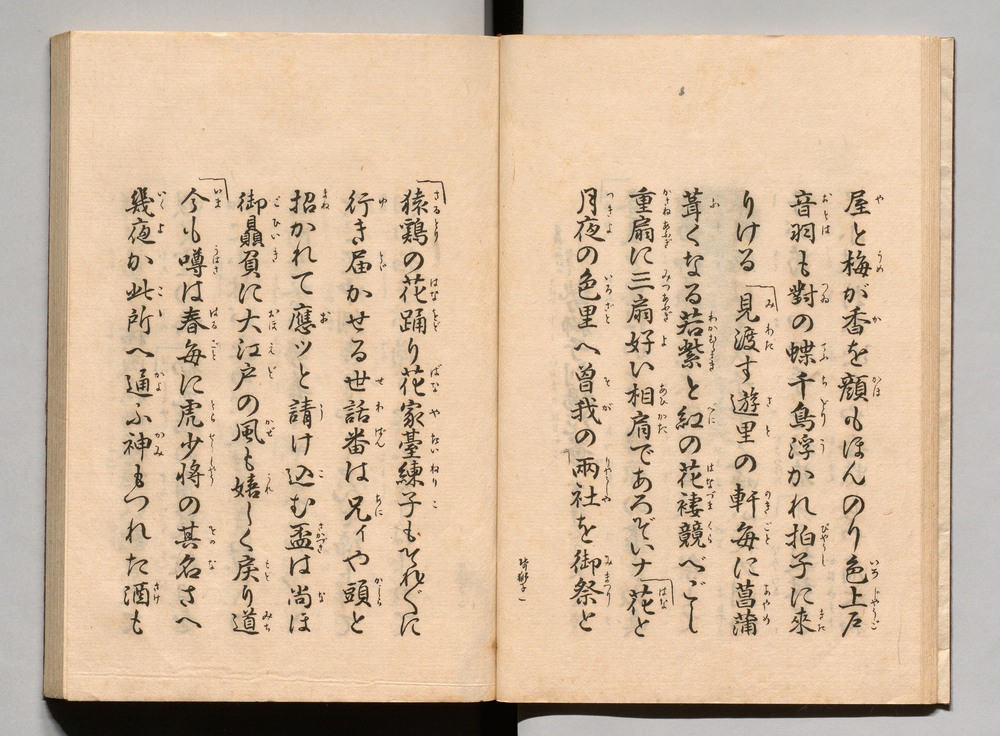 屋と梅が香を顔もほんのり色上戸
音羽も對の蝶千鳥浮かれ拍子に來
りける「見渡す遊里の軒毎に菖蒲
葺くなる若紫と紅の花褄競べごし
重扇に三扇好い相肩であろぞいナ「花と
月夜の色里へ曾我の兩社を御祭と
「猿鶏の花踊り花家臺練子もそれ〴〵に
行き届かせる世話番は兄ィや頭と
招かれて應ッと請け込む盃は尚ほ
御贔負に大江戸の風も嬉しく戻り道
「今も噂は春毎に虎少將の其名さへ
幾夜か此所へ通ふ神もつれた酒も